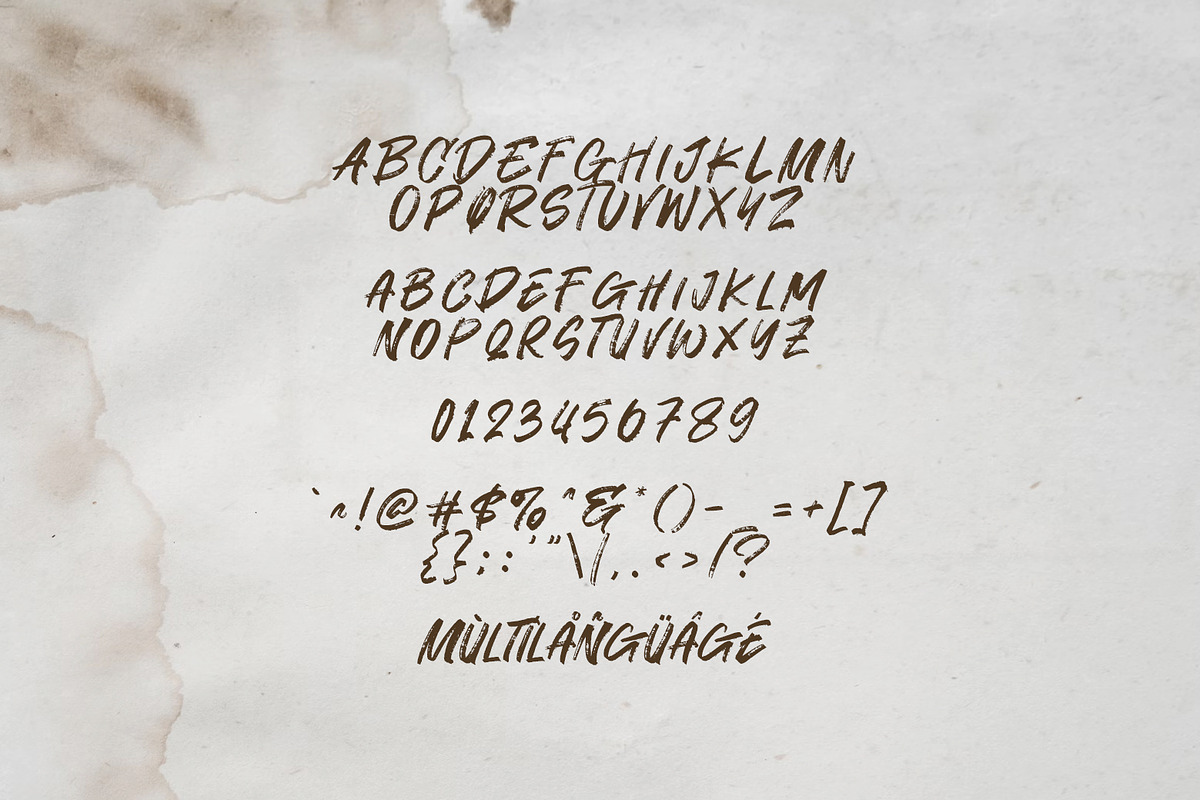 ABCDEFGHIJKLMN
OPQRSTUVWXYZ
ABCDEFGHIJKLM
NOPQRSTUVWXYZ
0123456789
`~!@#$%^&*()-_=+[]
{};:'"\|,.<>/?
MÙLTÌLÅÑGÜÂGÉ